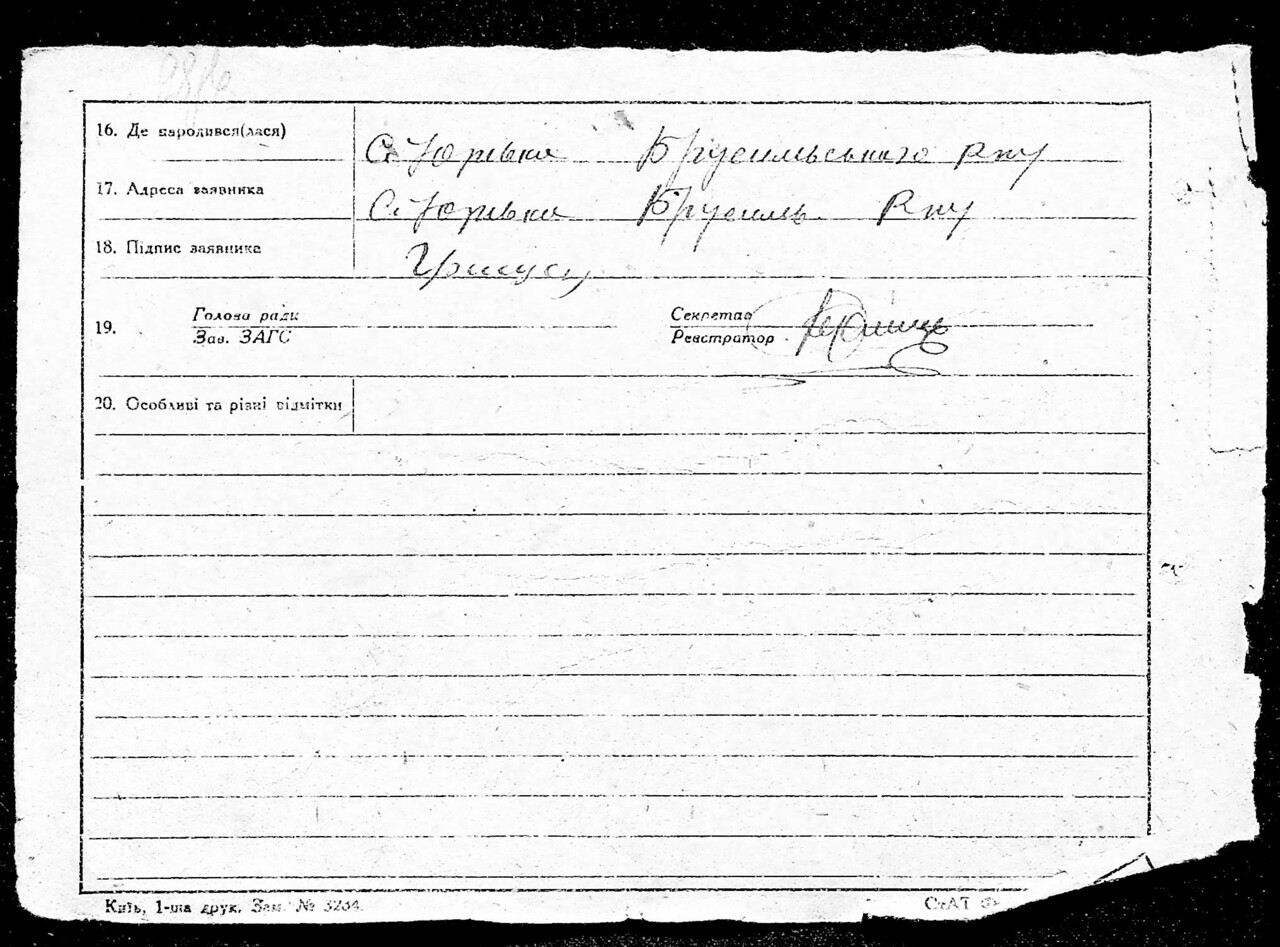 16. Де народився(лася) С. Юрівка Брусильського Рну
17. Адреса заявника С. Юрівка Брусиль. Рну
18. Підпис заявника
19. Голова ради Секретар
Зав. ЗАГС Реєстратор
20. Особливі та різні відмітки
Київ, 1-ша друк. Зам. № 3234. СтАТ Ф